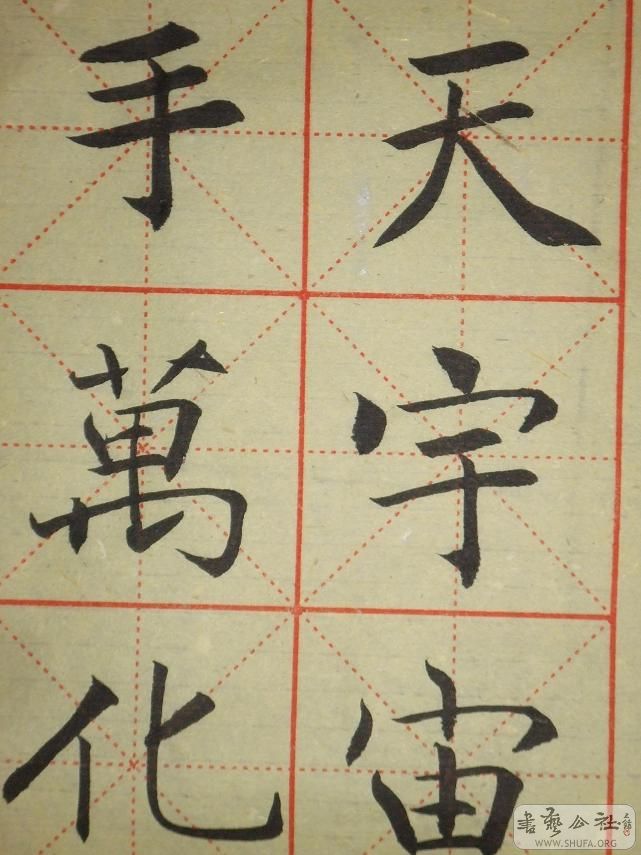 天宇宙
手萬化
書藝公社
WWW.SHUFA.ORG